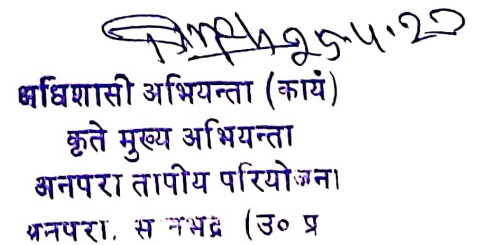 25-4-20
अधिशासी अभियन्ता (कार्य)
कृते मुख्य अभियन्ता
अनपरा तापीय परियोजना
अनपरा, स नभद्र (उ० प्र